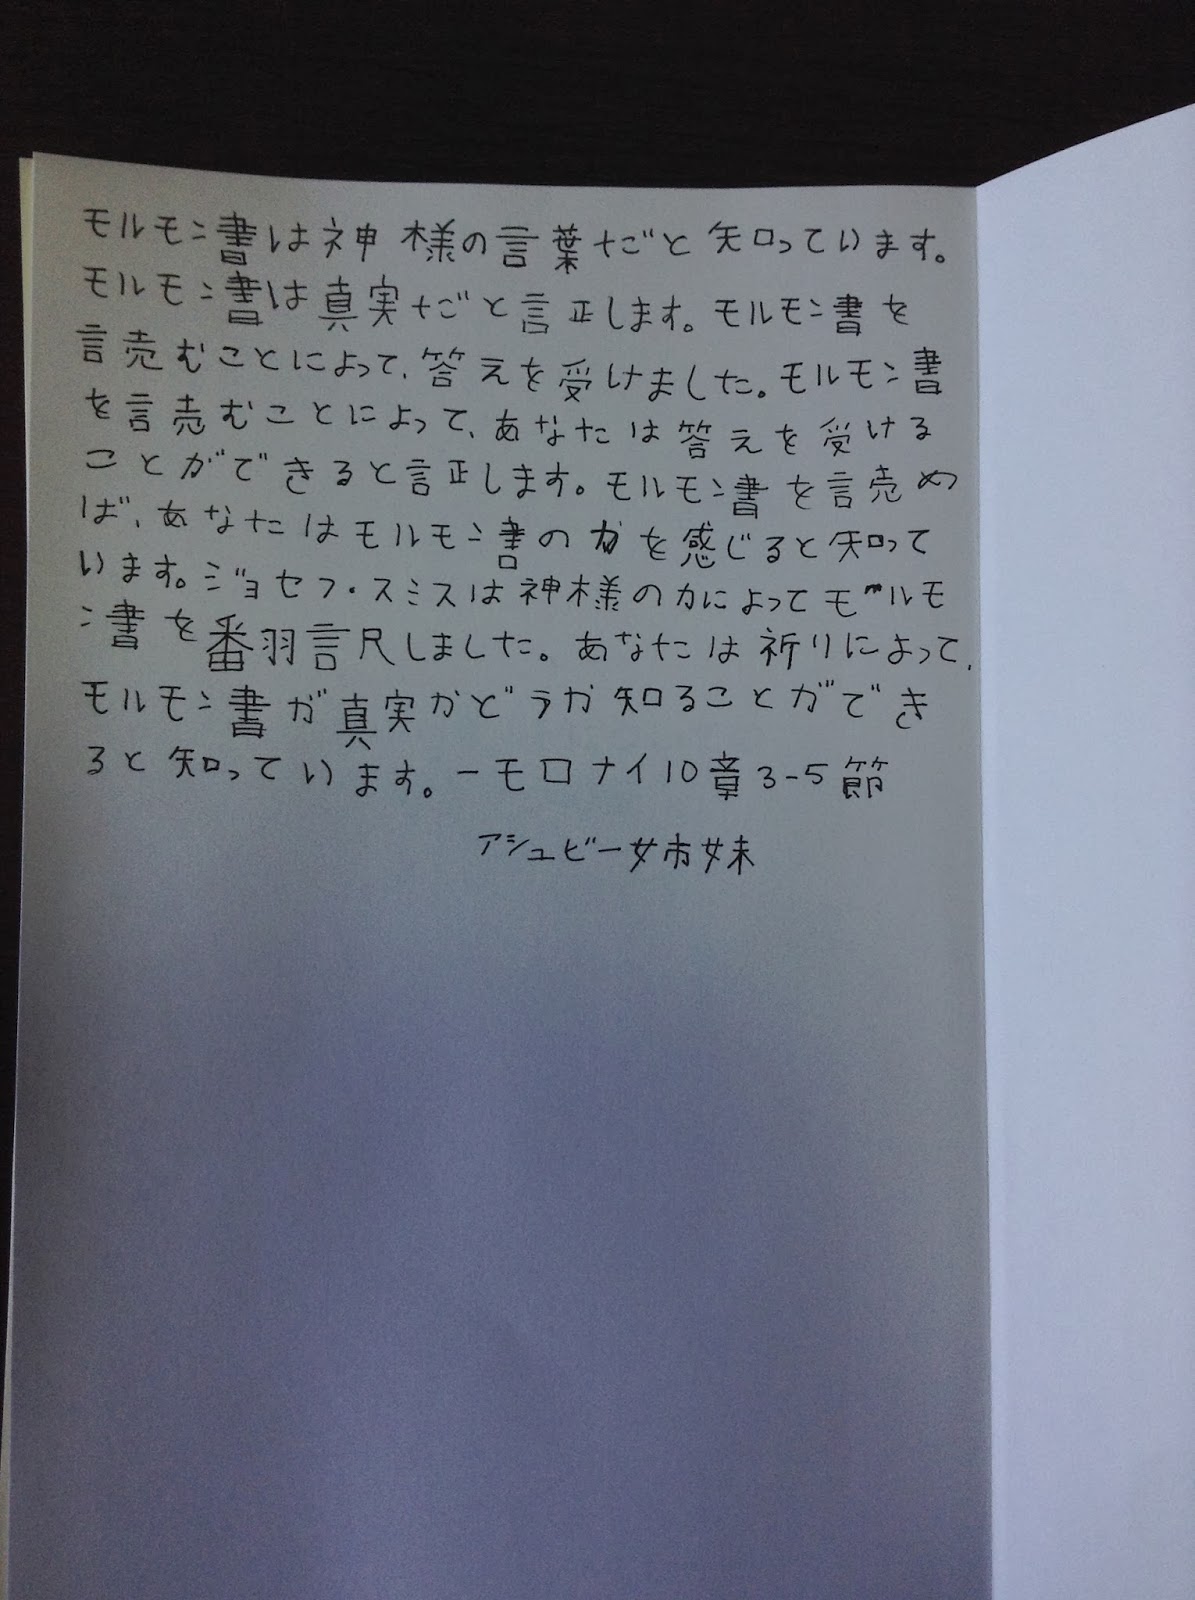 モルモン書は神様の言葉だと知っています。
モルモン書は真実だと証します。モルモン書を
読むことによって、答えを受けました。モルモン書
を読むことによって、あなたは答えを受ける
ことができると証します。モルモン書を読め
ば、あなたはモルモン書の力を感じると知って
います。ジョセフ・スミスは神様の力によってモルモ
ン書を翻訳しました。あなたは祈りによって、
モルモン書が真実かどうか知ることができ
ると知っています。ーモロナイ10章3-5節
アシュビー姉妹